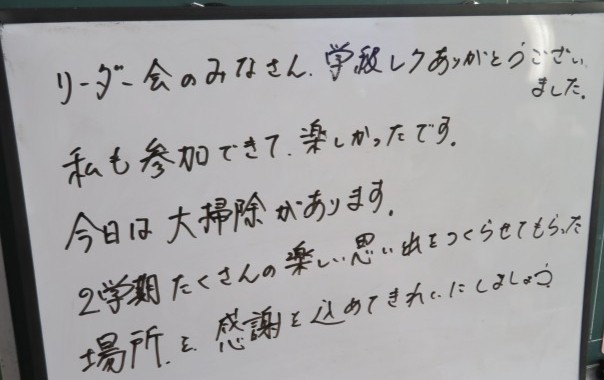 リーダー会のみなさん、学級レクありがとうござい
ました。
私も参加できて、楽しかったです。
今日は大掃除があります。
2学期たくさんの楽しい思い出をつくらせてもらった
場所を、感謝を込めてきれいにしましょう